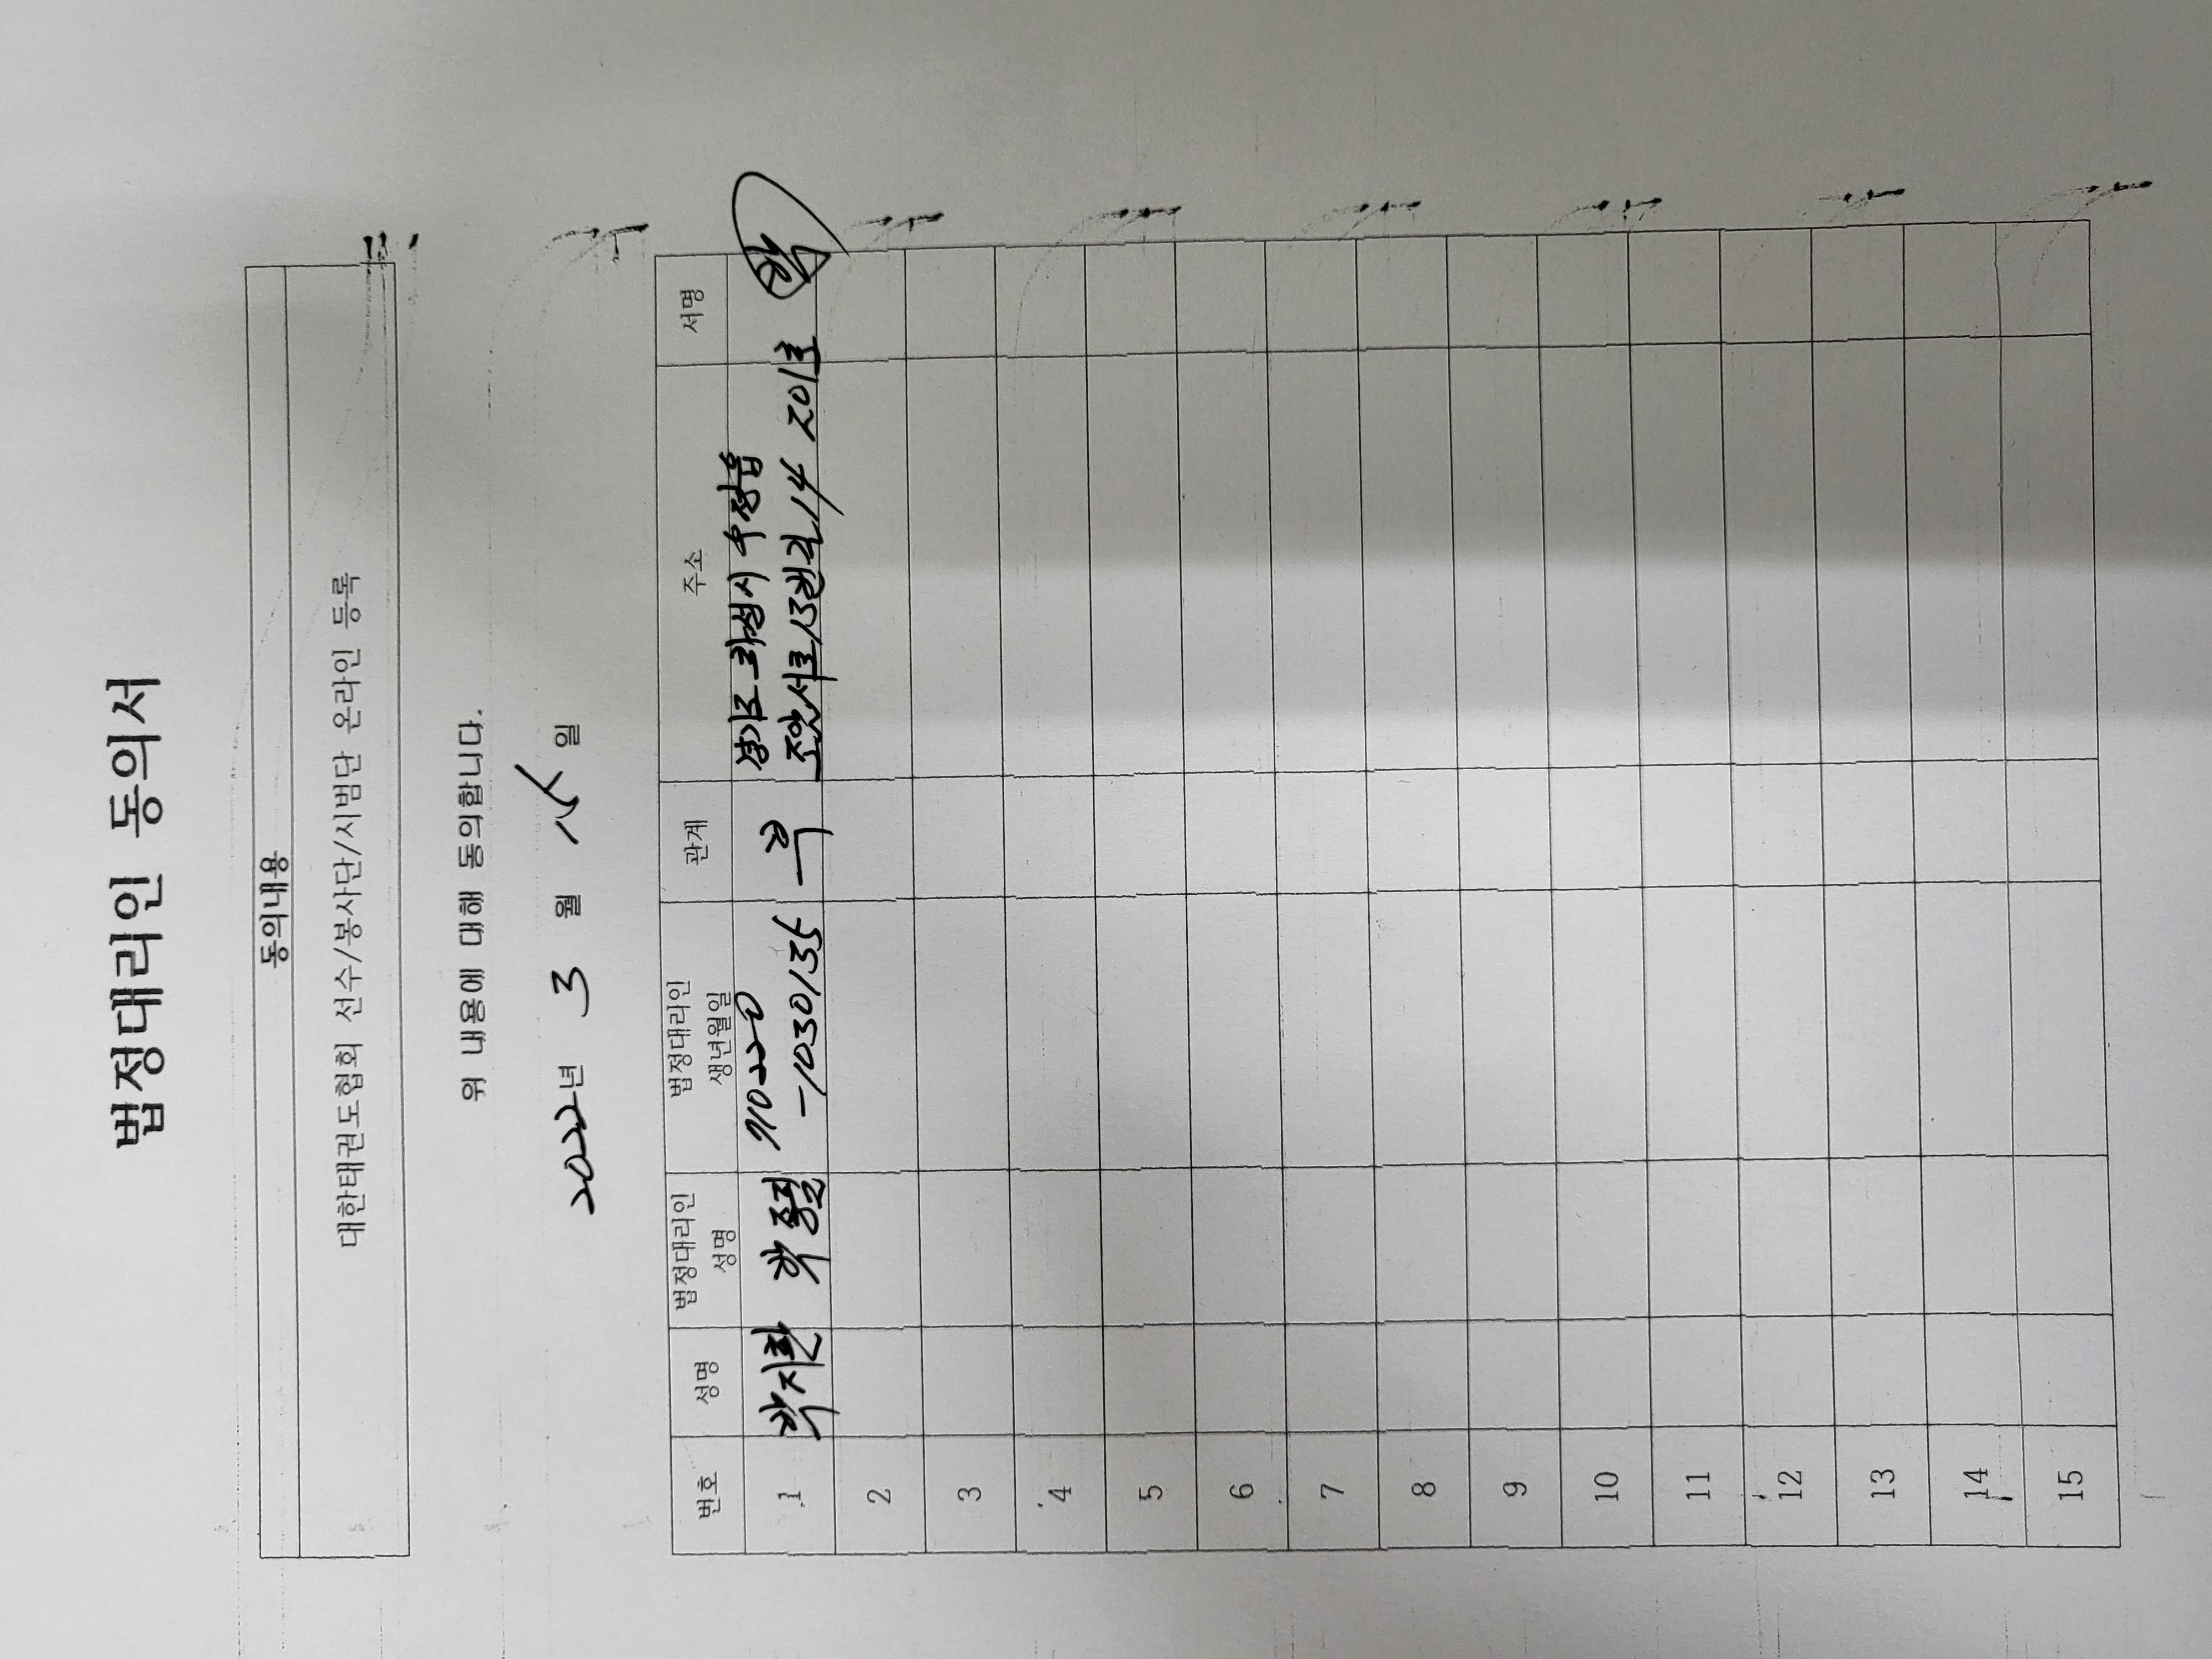 법정대리인 동의서
동의내용
대한태권도협회 선수/봉사단/시범단 온라인 등록
위 내용에 대해 동의합니다.
2022년 3 월 일
번호 성명 법정대리인 성명 법정대리인 생년월일 관계 주소 서명
1 박지환 박종필 710220 -1030135 부 경기도 화성시 우정읍 조암서로13번길 14 201호 박
2
3
4
5
6
7
8
9
10
11
12
13
14
15